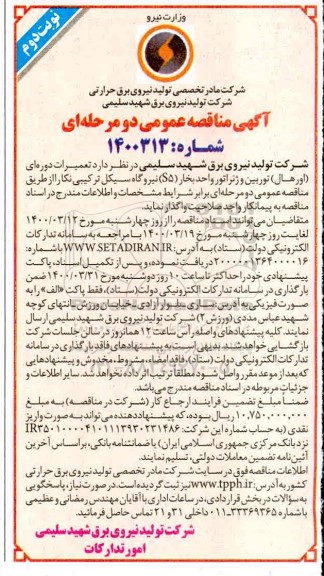 نوبت دوم
وزارت نیرو
شرکت مادر تخصصی تولید نیروی برق حرارتی
شرکت تولید نیروی برق شهید سلیمی
آگهی مناقصه عمومی دو مرحله‌ای
شماره: ۱۴۰۰۳۱۳
شرکت تولید نیروی برق شهید سلیمی در نظر دارد تعمیرات دوره‌ای
(اورهال) توربین و ژنراتور واحد بخار (S5) نیروگاه سیکل ترکیبی نکا را از طریق
مناقصه عمومی دو مرحله‌ای برابر شرایط مشخصات و اطلاعات مندرج در اسناد
مناقصه به پیمانکار واجد صلاحیت واگذار نماید.
متقاضیان می‌توانند اسناد مناقصه را از روز چهارشنبه مورخ ۱۴۰۰/۰۳/۱۲
لغایت روز چهارشنبه مورخ ۱۴۰۰/۰۳/۱۹ با مراجعه به سامانه تدارکات
الکترونیکی دولت (ستاد) به آدرس: WWW.SETADIRAN.IR با شماره:
۲۰۰۰۰۰۱۳۶۴۰۰۰۰۱۶ دریافت نموده، و پس از تکمیل اسناد، پاکت
پیشنهادی خود را حداکثر تا ساعت ۱۰ روز دوشنبه مورخ ۱۴۰۰/۰۳/۳۱ ضمن
بارگذاری در سامانه تدارکات الکترونیکی دولت (ستاد)، فقط پاکت «الف» را به
صورت فیزیکی به آدرس ساری، بلوار آزادی، خیابان ورزش، انتهای کوچه
شهید عباس مددی (ورزش ۲) شرکت تولید نیروی برق شهید سلیمی ارسال
نمایند. کلیه پیشنهادهای واصله رأس ساعت ۱۲ همانروز در سالن جلسات شرکت
بازگشایی خواهد شد. بدیهی است به پیشنهادهای فاقد بارگذاری در سامانه
تدارکات الکترونیکی دولت (ستاد)، فاقد امضاء، مشروط، مخدوش و پیشنهادهایی
که بعد از موعد مقرر واصل شود مطلقاً ترتیب اثر داده نخواهد شد. سایر اطلاعات و
جزئیات مربوطه در اسناد مناقصه مندرج می‌باشد.
ضمناً مبلغ تضمین فرایند ارجاع کار (شرکت در مناقصه) به مبلغ
۱۰,۷۵۰,۰۰۰,۰۰۰ ریال بوده، که پیشنهاددهنده می‌تواند به صورت واریز
نقدی (به حساب شماره این شرکت:
نزد بانک مرکزی جمهوری اسلامی ایران) یا ضمانتنامه بانکی، براساس آخرین
آئین‌نامه تضمین معاملات دولتی، تسلیم نمایند.
اطلاعات مناقصه فوق در سایت شرکت مادر تخصصی تولید نیروی برق حرارتی
کشور به آدرس: www.tpph.ir نیز ثبت گردیده است. در صورت نیاز، پاسخگویی
به سؤالات در بخش قراردادی، در ساعات اداری با آقایان مهندس رمضانی و عظیمی
با شماره ۳۳۳۶۹۳۶۵-۰۱۱ داخلی ۳۱ و ۲۱ تماس حاصل فرمائید.
شرکت تولید نیروی برق شهید سلیمی
امور تدارکات